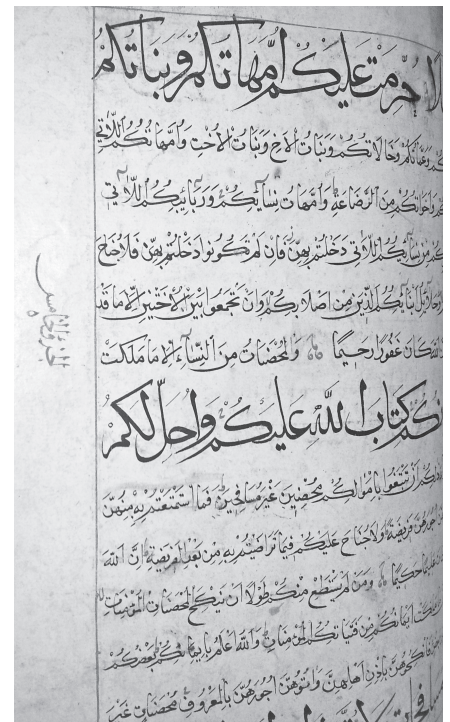 لا حُرِّمَتْ عَلَيْكُمْ اُمَّهَاتُكُمْ وَبَنَاتُكُمْ
كُمْ وَعَمَّاتُكُمْ وَخَالَاتُكُمْ وَبَنَاتُ الْاَخِ وَبَنَاتُ الْاُخْتِ وَاُمَّهَاتُكُمُ اللَّاتِي
كُمْ وَاَخَوَاتُكُمْ مِنَ الرَّضَاعَةِ وَاُمَّهَاتُ نِسَائِكُمْ وَرَبَائِبُكُمُ اللَّاتِي
كُمْ مِنْ نِسَائِكُمُ اللَّاتِي دَخَلْتُمْ بِهِنَّ فَاِنْ لَمْ تَكُونُوا دَخَلْتُمْ بِهِنَّ فَلَا جُنَاحَ
وَحَلَائِلُ اَبْنَائِكُمُ الَّذِينَ مِنْ اَصْلَابِكُمْ وَاَنْ تَجْمَعُوا بَيْنَ الْاُخْتَيْنِ اِلَّا مَا قَدْ
اللهَ كَانَ غَفُورًا رَحِيمًا وَالْمُحْصَنَاتُ مِنَ النِّسَاءِ اِلَّا مَا مَلَكَتْ
نُكُمْ كِتَابَ اللهِ عَلَيْكُمْ وَاُحِلَّ لَكُمْ
ذَلِكُمْ اَنْ تَبْتَغُوا بِاَمْوَالِكُمْ مُحْصِنِينَ غَيْرَ مُسَافِحِينَ فَمَا اسْتَمْتَعْتُمْ بِهِ مِنْهُنَّ
اُجُورَهُنَّ فَرِيضَةً وَلَا جُنَاحَ عَلَيْكُمْ فِيمَا تَرَاضَيْتُمْ بِهِ مِنْ بَعْدِ الْفَرِيضَةِ اِنَّ اللهَ
عَلِيمًا حَكِيمًا وَمَنْ لَمْ يَسْتَطِعْ مِنْكُمْ طَوْلًا اَنْ يَنْكِحَ الْمُحْصَنَاتِ الْمُؤْمِنَاتِ
مَلَكَتْ اَيْمَانُكُمْ مِنْ فَتَيَاتِكُمُ الْمُؤْمِنَاتِ وَاللهُ اَعْلَمُ بِاِيمَانِكُمْ بَعْضُكُمْ
فَانْكِحُوهُنَّ بِاِذْنِ اَهْلِهِنَّ وَاٰتُوهُنَّ اُجُورَهُنَّ بِالْمَعْرُوفِ مُحْصَنَاتٍ غَيْرَ
الجزو الخامس